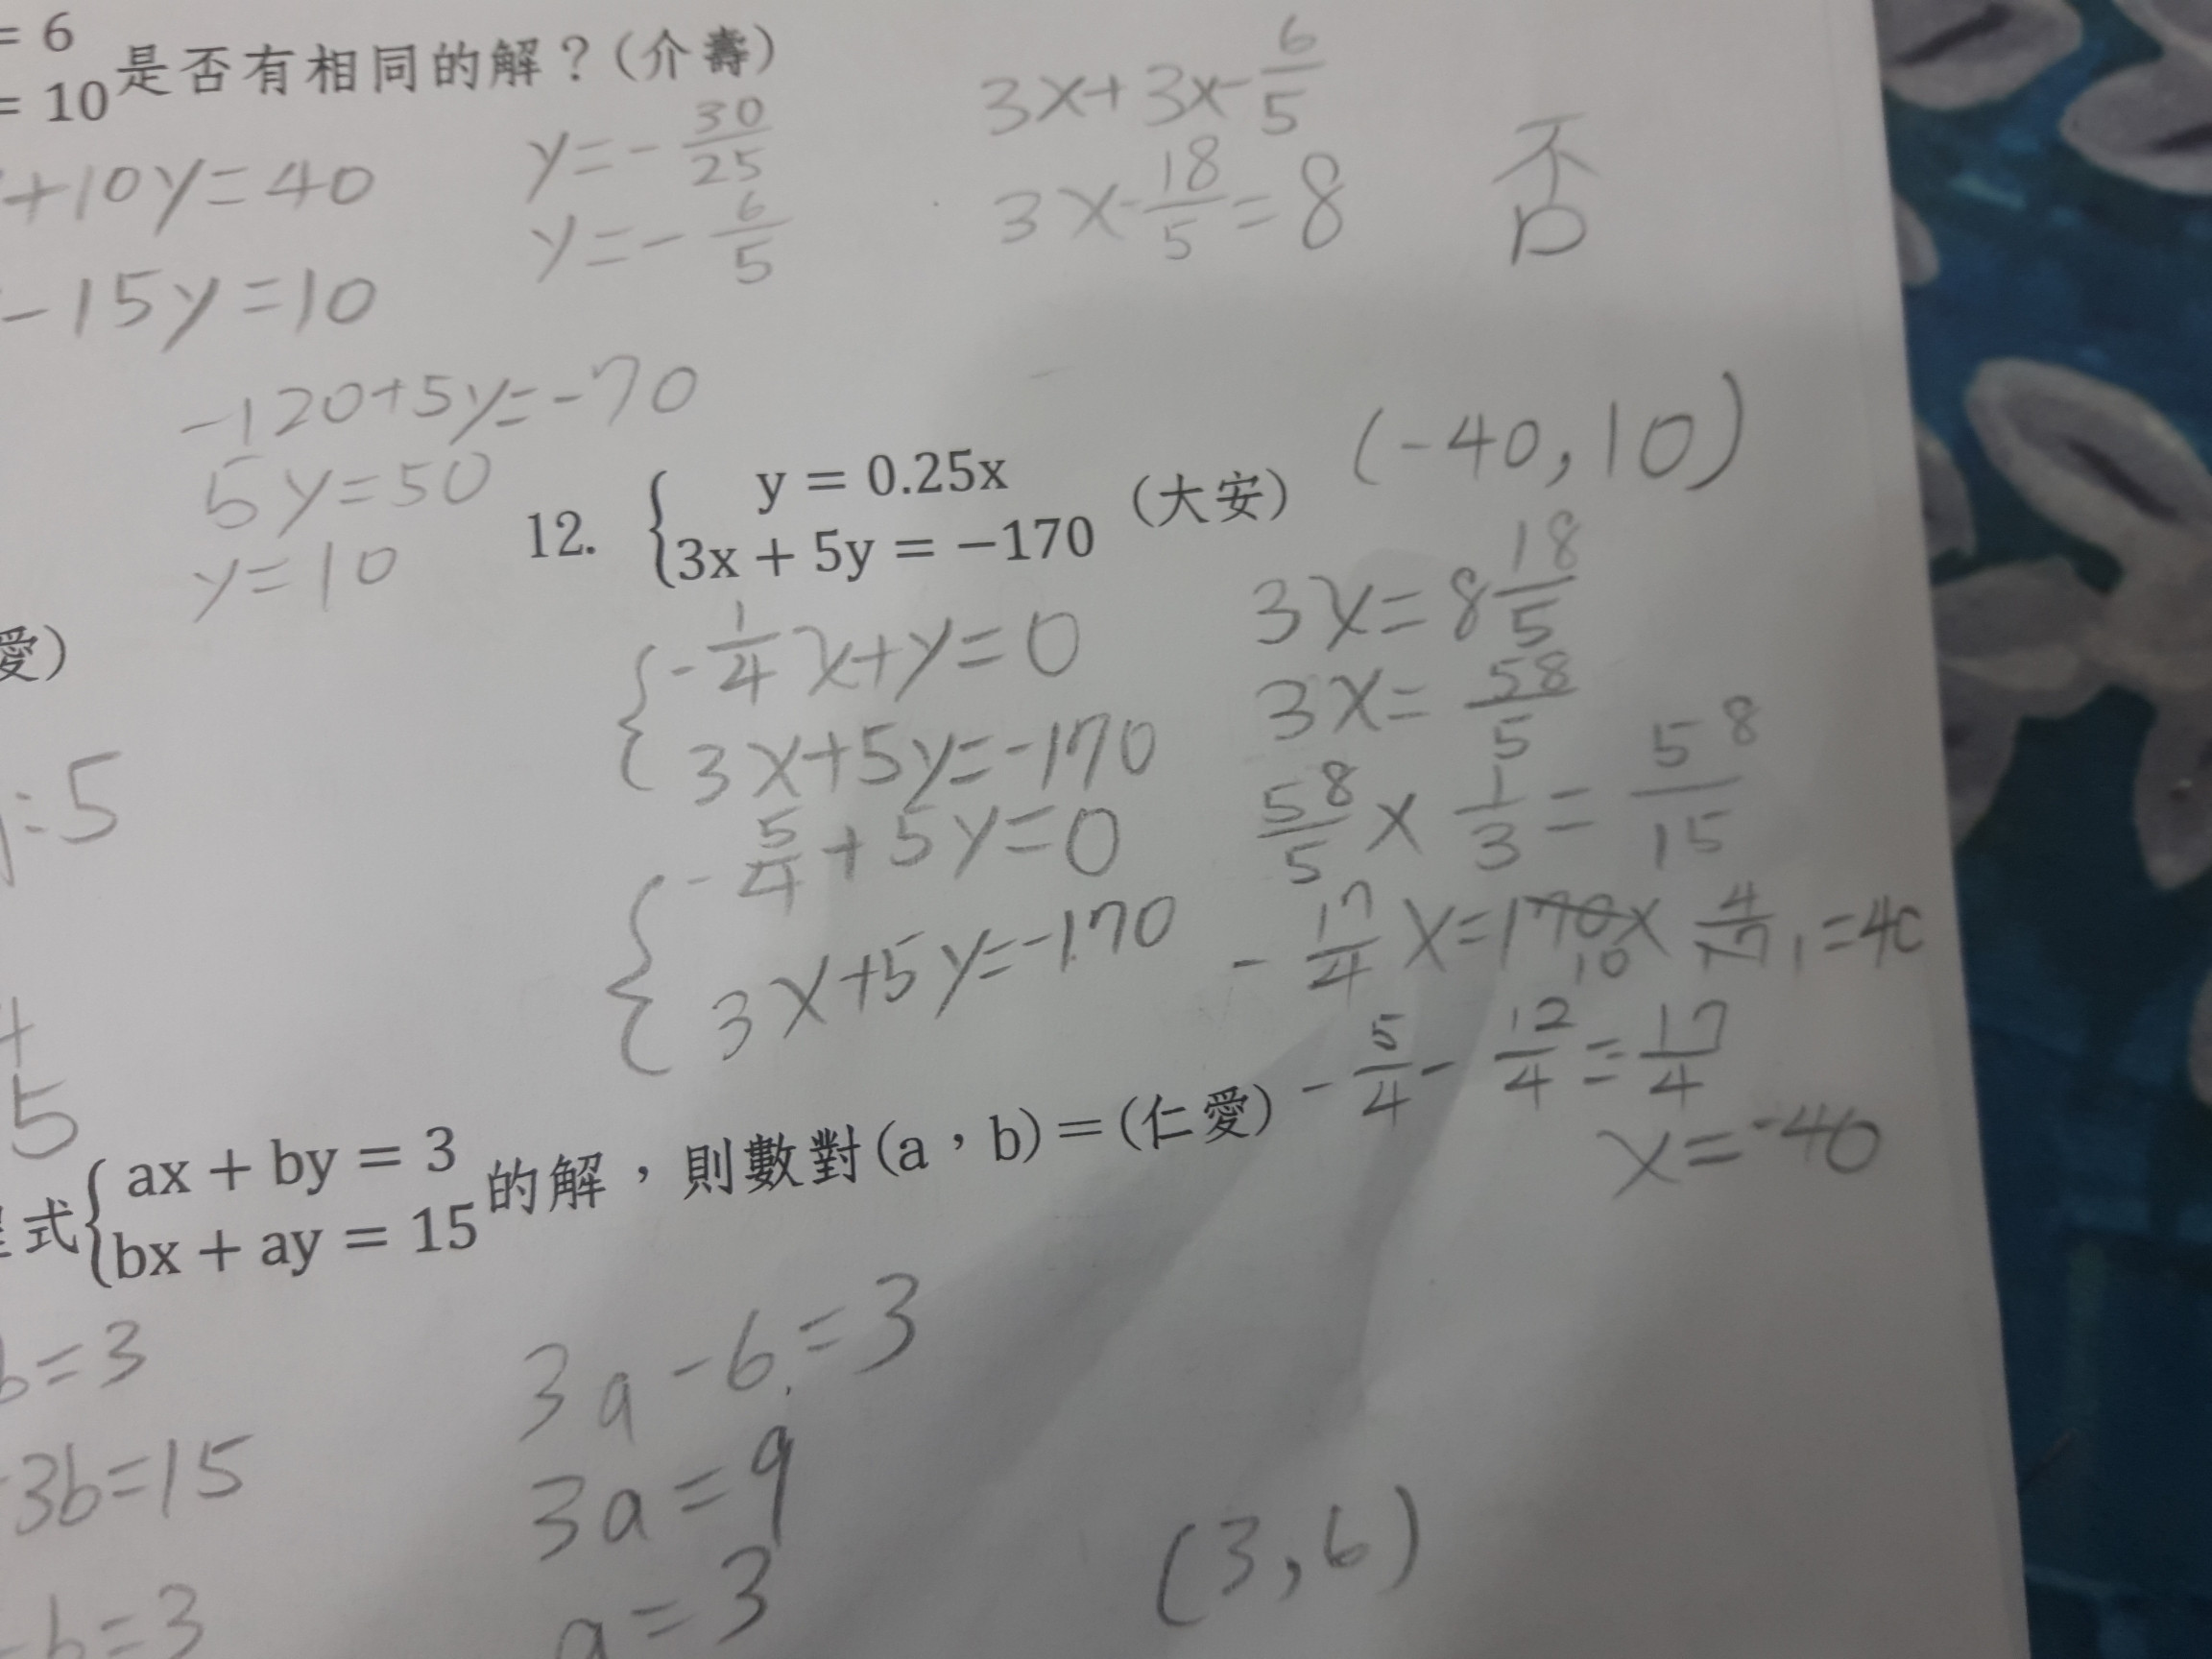 = 6
= 10 是否有相同的解？(介壽)
+10y=40
-15y=10
y=-30/25
y=-6/5
3x+3x-6/5
3x-18/5=8
否
-120+5y=-70
5y=50
y=10
12. { y = 0.25x
3x + 5y = −170 (大安)
(-40,10)
{ -1/4x+y=0
3x+5y=-170
{ -5/4+5y=0
3x+5y=-170
3x=8 18/5
3x=58/5
58/5×1/3=58/15
-17/4x=170×4/17=40
10 1
-5/4-12/4=17/4
x=-40
愛)
=5
5
式{ ax + by = 3
bx + ay = 15 的解，則數對(a，b)＝(仁愛)
b=3
3b=15
-b=3
3a-6=3
3a=9
a=3
(3,6)